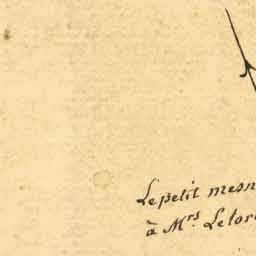 Le petit mesn
à Mrs. Letor